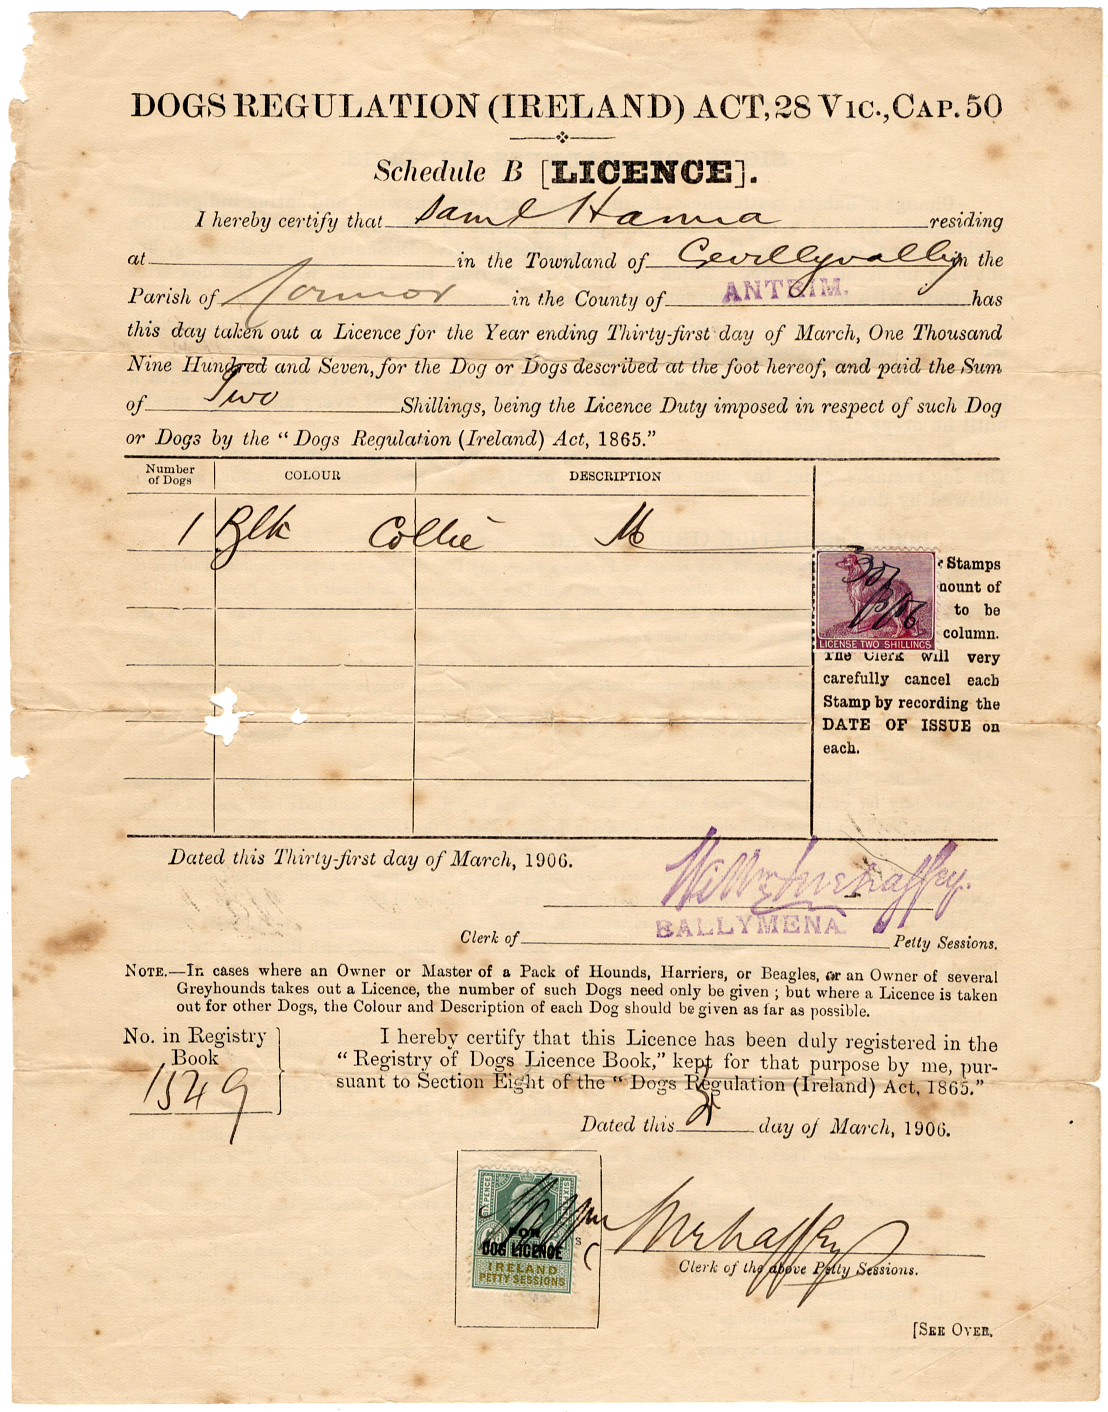 DOGS REGULATION (IRELAND) ACT, 28 VIC., CAP. 50
Schedule B [LICENCE].
I hereby certify that Saml Hanna residing
at in the Townland of in the
Parish of Connor in the County of ANTRIM. has
this day taken out a Licence for the Year ending Thirty-first day of March, One Thousand
Nine Hundred and Seven, for the Dog or Dogs described at the foot hereof, and paid the Sum
of Two Shillings, being the Licence Duty imposed in respect of such Dog
or Dogs by the “Dogs Regulation (Ireland) Act, 1865.”
Number of Dogs COLOUR DESCRIPTION
1 Blk Collie M
Stamps
mount of
to be
column.
LICENSE TWO SHILLINGS
The Clerk will very
carefully cancel each
Stamp by recording the
DATE OF ISSUE on
each.
Dated this Thirty-first day of March, 1906.
BALLYMENA.
Clerk of Petty Sessions.
NOTE.—In cases where an Owner or Master of a Pack of Hounds, Harriers, or Beagles, or an Owner of several
Greyhounds takes out a Licence, the number of such Dogs need only be given; but where a Licence is taken
out for other Dogs, the Colour and Description of each Dog should be given as far as possible.
No. in Registry
Book
1549
I hereby certify that this Licence has been duly registered in the
“Registry of Dogs Licence Book,” kept for that purpose by me, pur-
suant to Section Eight of the “Dogs Regulation (Ireland) Act, 1865.”
Dated this 31 day of March, 1906.
SIXPENCE
FOR
DOG LICENCE
IRELAND
PETTY SESSIONS
Clerk of the above Petty Sessions.
[SEE OVER.